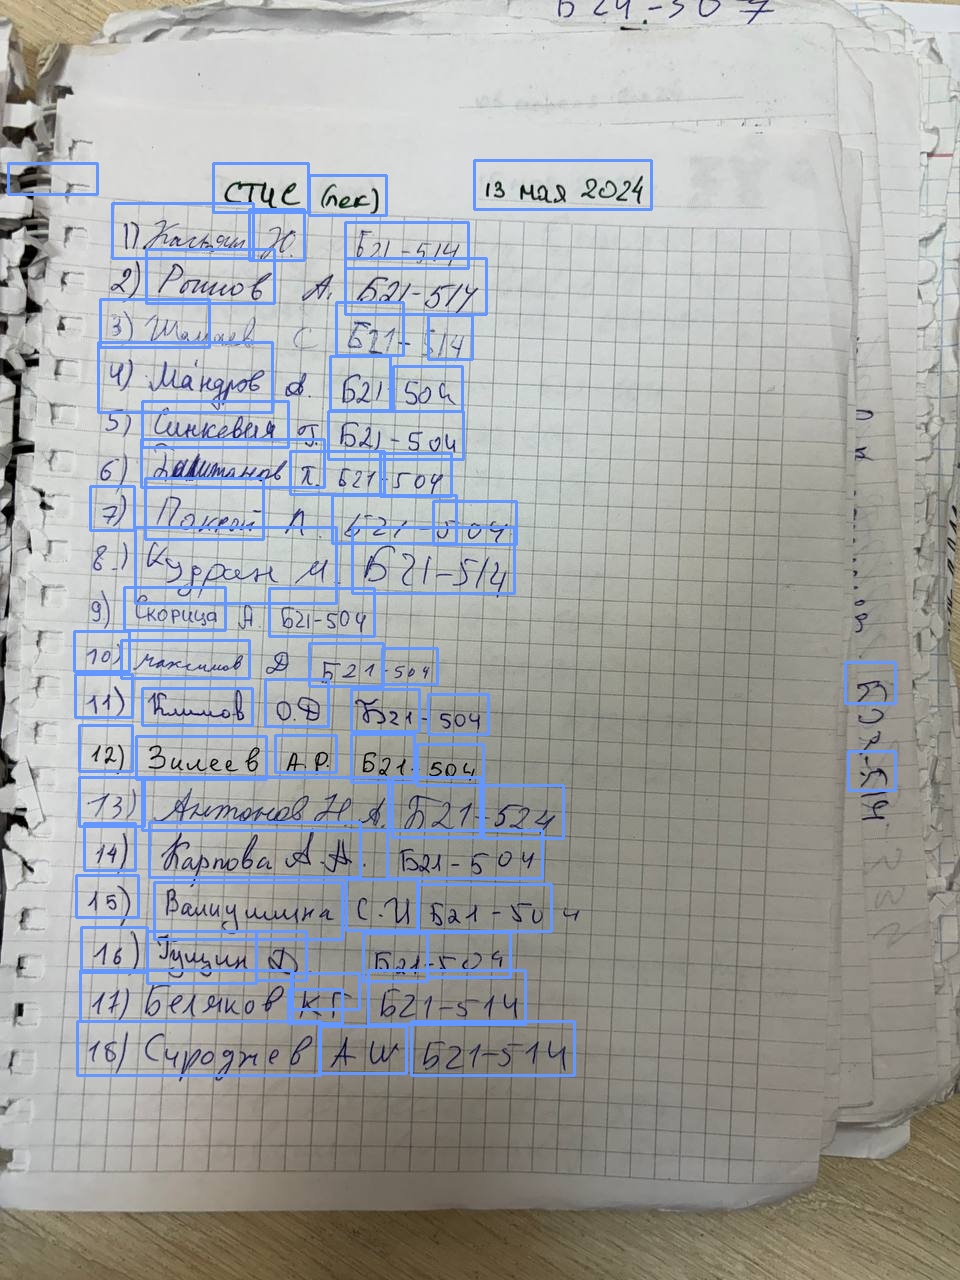 Б24-507
СТИС (лек) 13 мая 2024
1) Касьян Ю. Б21-514
2) А. Б21-514
3) С Б21-514
4) Мандров А. Б21-504
5) Синкевич Г. Б21-504
6) Башманов П. Б21-504
7) Покрой А. Б21-504
8.) Кудран М. Б21-514
9) Скорица А Б21-504
10) Максимов Д Б21-504
11) Климов О.Д Б21-504
12) Зилеев А.Р. Б21-504
13) Антонов Н.А. Б21-524
14) Карпова А.А. Б21-504
15) Валиуллина С.И Б21-504
16) Гущин Д Б21-504
17) Беляков КГ Б21-514
18) Сироджев АШ Б21-514